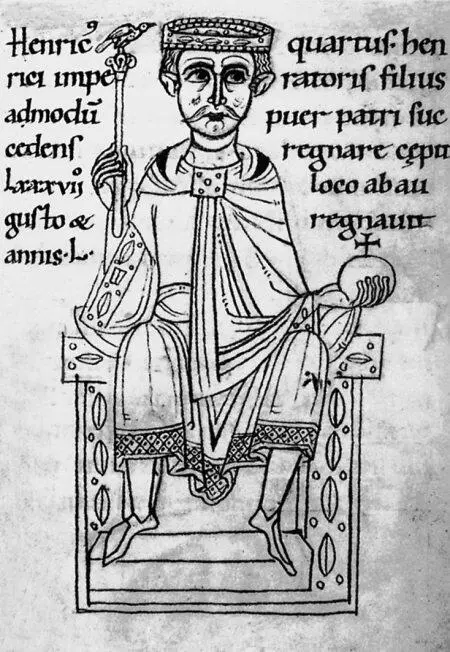 Henricꝰ quartus. hen
rici impe ratoris filius
admodū puer patri suc
cedens regnare cępit
lxxxviiº loco ab au
gusto & regnauit
annis · L ·